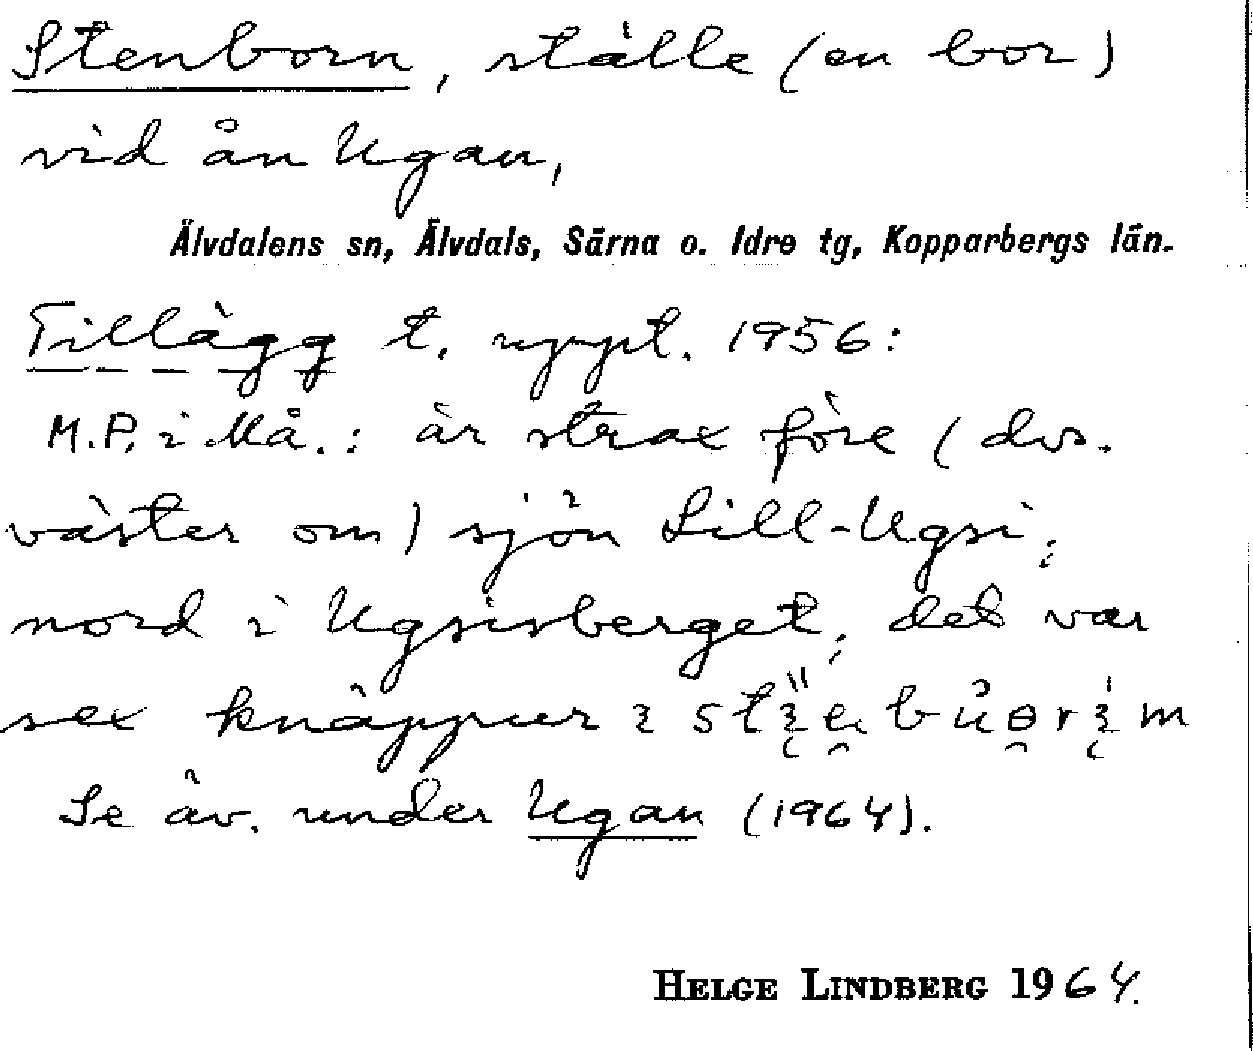 Stenborn, ställe (en bor)
vid ån Ugan,
Älvdalens sn, Älvdals, Särna o. Idre tg, Kopparbergs län.
Tillägg t. uppt. 1956:
M.P. i Må.: är strax före (dvs.
väster om) sjön Lill-Ugsi;
nord i Ugsisberget; det var
sex knäppur i
Se äv. under Ugan (1964).
HELGE LINDBERG 1964.